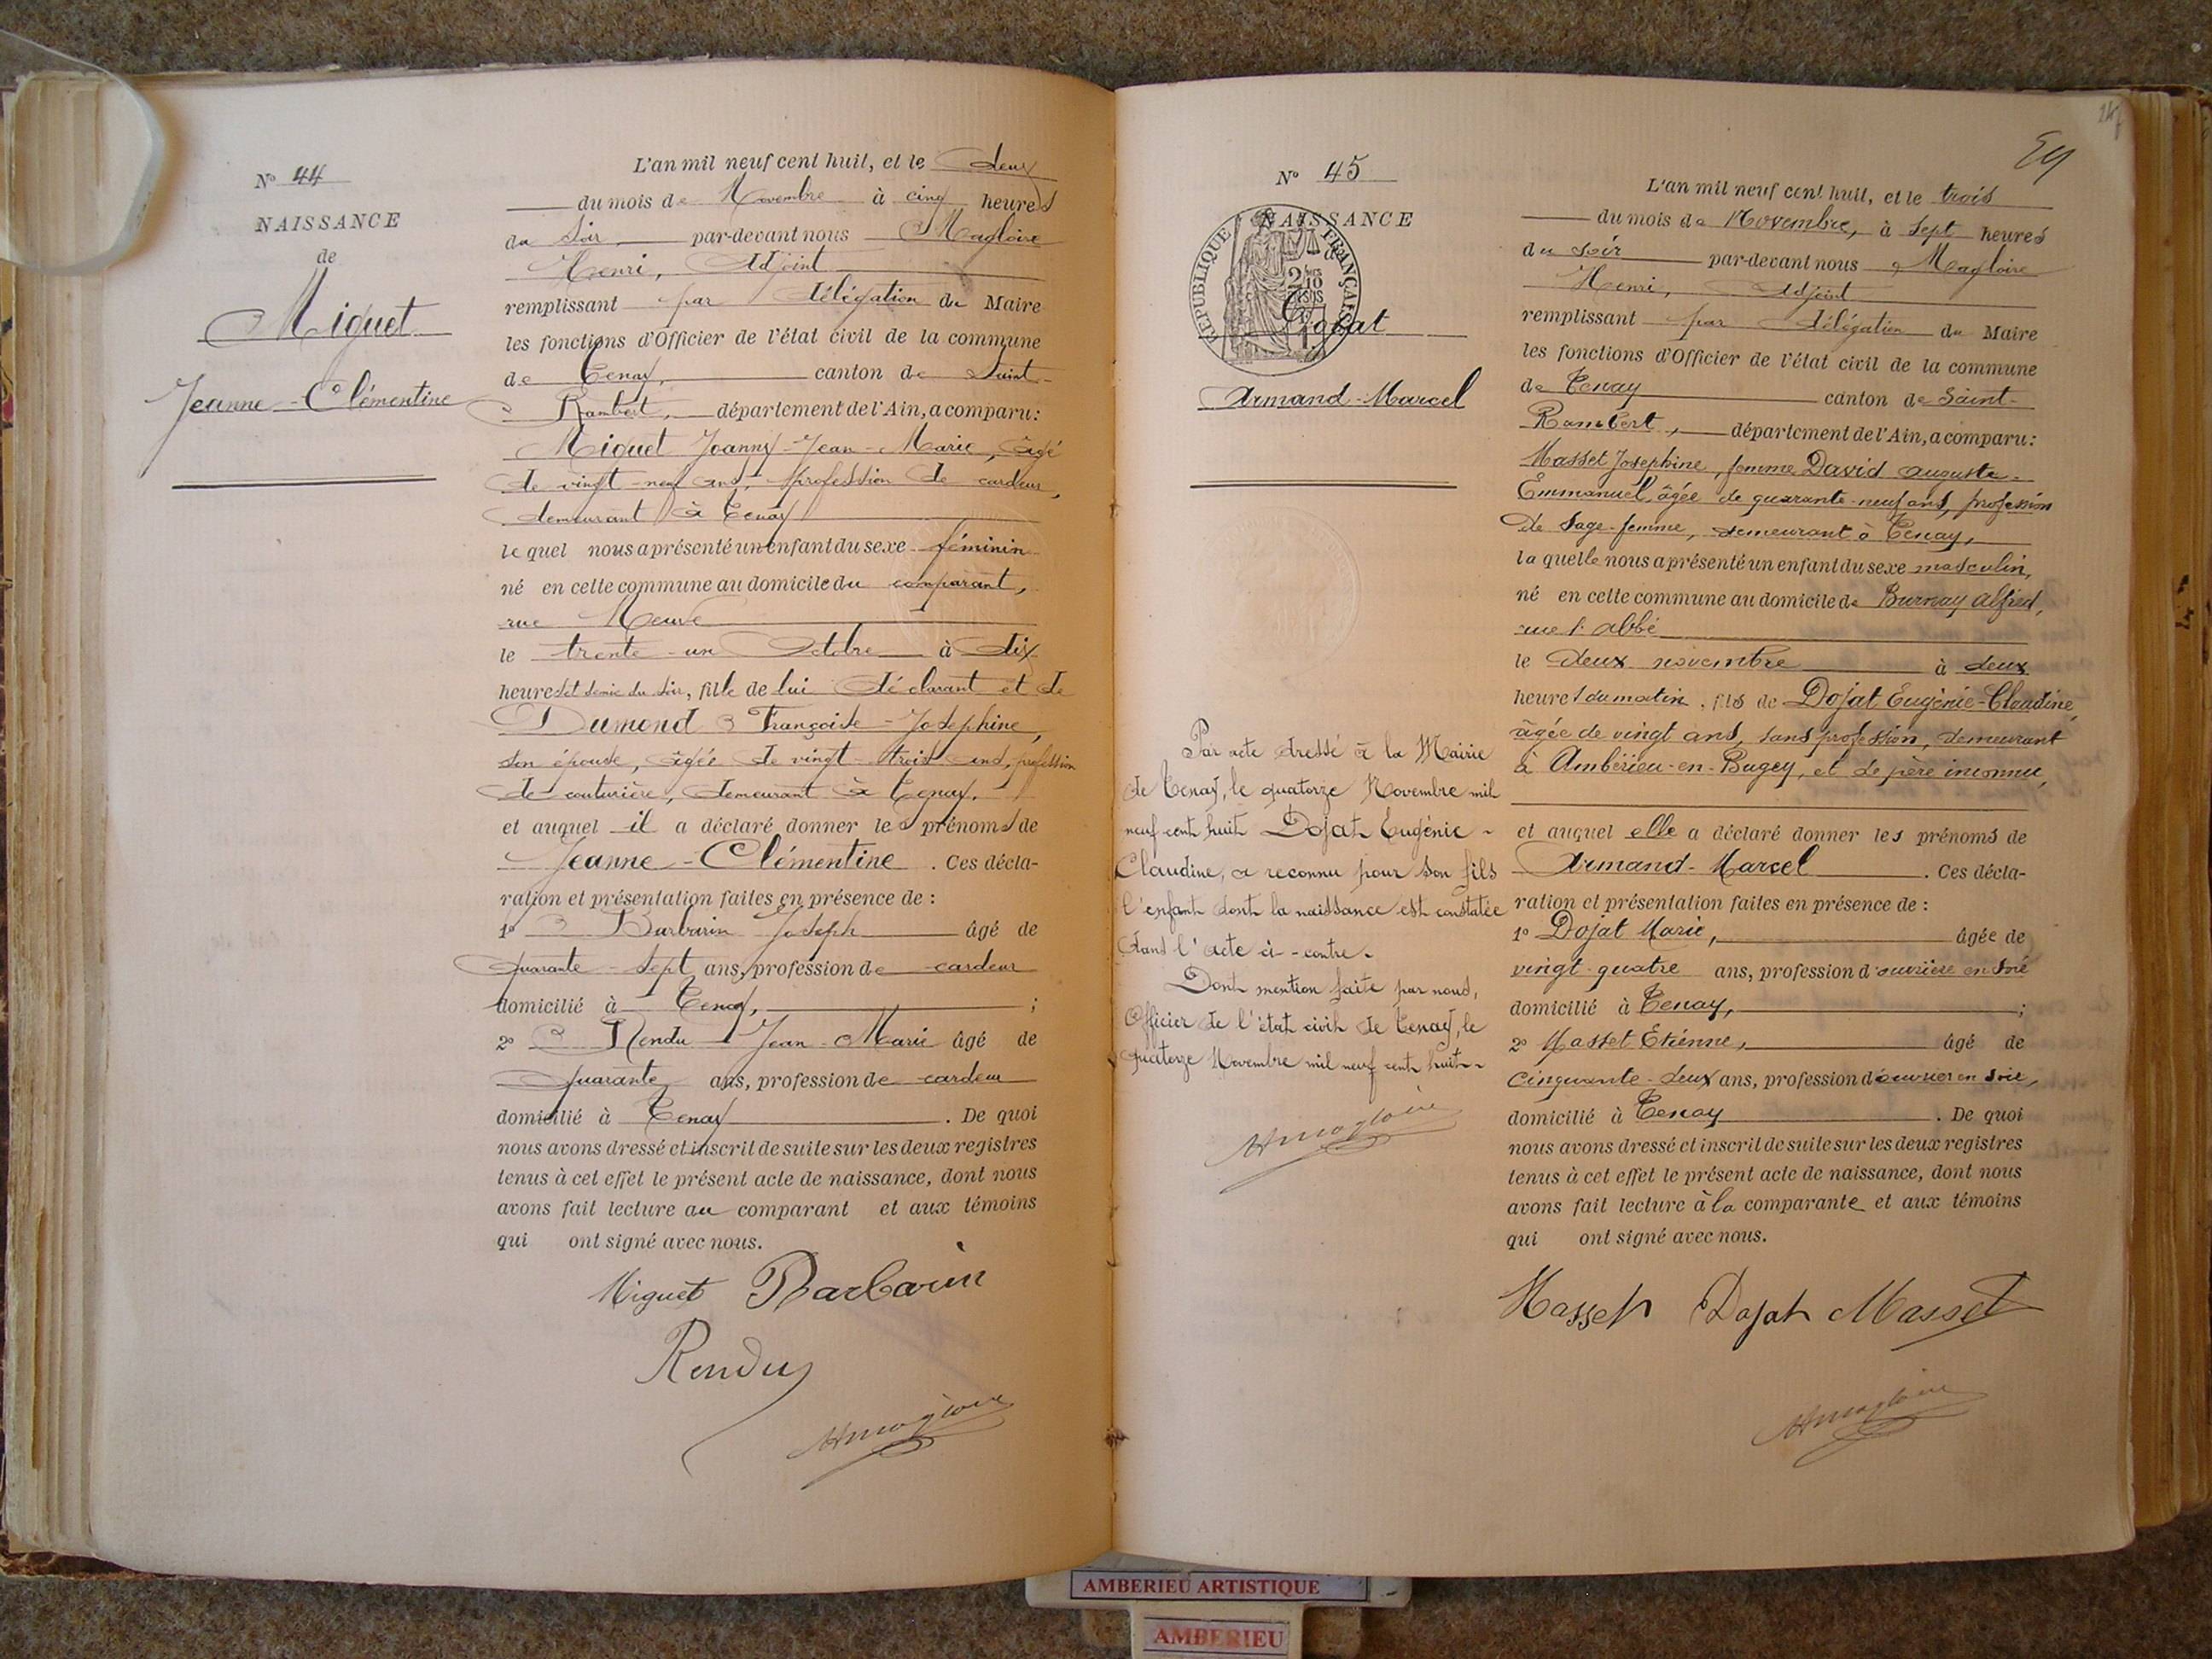 N° 44
NAISSANCE
de
Miguet
Jeanne-Clémentine
L'an mil neuf cent huit, et le deux
du mois de Novembre à cinq heures
du soir par-devant nous Magloire
Henri, Adjoint
remplissant par délégation du Maire
les fonctions d'Officier de l'état civil de la commune
de Tenay, canton de Saint-
Rambert, département de l'Ain, a comparu:
Miguet Joanny-Jean-Marie, âgé
de vingt-neuf ans, profession de cardeur,
demeurant à Tenay
le quel nous a présenté un enfant du sexe féminin
né en cette commune au domicile du comparant,
rue Neuve
le trente-un Octobre à dix
heures et demie du soir, fille de lui déclarant et de
Dumond Françoise-Josephine,
son épouse, âgée de vingt-trois ans, profession
de couturière, demeurant à Tenay.
et auquel il a déclaré donner les prénoms de
Jeanne-Clémentine. Ces décla-
ration et présentation faites en présence de :
1° Barbarin Joseph âgé de
quarante-sept ans, profession de cardeur
domicilié à Tenay, ;
2° Rendu Jean-Marie âgé de
quarante ans, profession de cardeur
domicilié à Tenay. De quoi
nous avons dressé et inscrit de suite sur les deux registres
tenus à cet effet le présent acte de naissance, dont nous
avons fait lecture au comparant et aux témoins
qui ont signé avec nous.
Miguet Barbarin
Rendu
HMagloire
24
N° 45
NAISSANCE
RÉPUBLIQUE FRANÇAISE
Dojat
Armand-Marcel
Par acte dressé à la Mairie
de Tenay, le quatorze Novembre mil
neuf cent huit Dojat Eugénie-
Claudine, a reconnu pour son fils
l'enfant dont la naissance est constatée
dans l'acte ci-contre.
Dont mention faite par nous,
Officier de l'état civil de Tenay, le
quatorze Novembre mil neuf cent huit.
HMagloire
L'an mil neuf cent huit, et le trois
du mois de Novembre, à sept heures
du soir par-devant nous Magloire
Henri, Adjoint
remplissant par délégation du Maire
les fonctions d'Officier de l'état civil de la commune
de Tenay canton de Saint-
Rambert, département de l'Ain, a comparu:
Masset Josephine, femme David Auguste-
Emmanuel, âgée de quarante-neuf ans, profession
de sage-femme, demeurant à Tenay,
la quelle nous a présenté un enfant du sexe masculin,
né en cette commune au domicile de Burnay Alfred,
rue l'abbé
le deux novembre à deux
heures du matin, fils de Dojat Eugénie-Claudine,
âgée de vingt ans, sans profession, demeurant
à Ambérieu-en-Bugey, et de père inconnu,
et auquel elle a déclaré donner les prénoms de
Armand-Marcel. Ces décla-
ration et présentation faites en présence de :
1° Dojat Marie, âgée de
vingt-quatre ans, profession d'ouvrière en soie
domicilié à Tenay, ;
2° Masset Etienne, âgé de
cinquante-deux ans, profession d'ouvrier en soie,
domicilié à Tenay. De quoi
nous avons dressé et inscrit de suite sur les deux registres
tenus à cet effet le présent acte de naissance, dont nous
avons fait lecture à la comparante et aux témoins
qui ont signé avec nous.
Masset Dojat Masset
HMagloire
AMBERIEU ARTISTIQUE
AMBERIEU